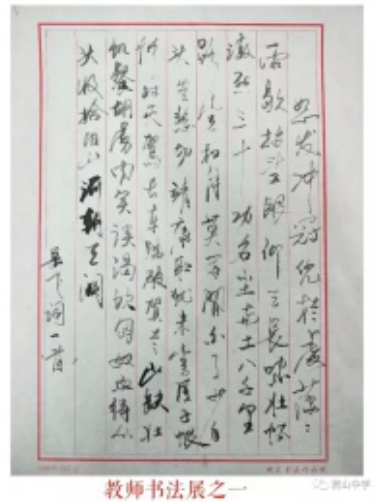 怒发冲冠凭栏处潇潇
雨歇抬望眼仰天长啸壮怀
激烈三十功名尘与土八千里
路云和月莫等闲白了少年
头空悲切靖康耻犹未雪臣子恨
何时灭驾长车踏破贺兰山缺壮
饥餐胡虏肉笑谈渴饮匈奴血待从
头收拾旧山河朝天阙
岳飞词一首
教师书法展之一
山中学